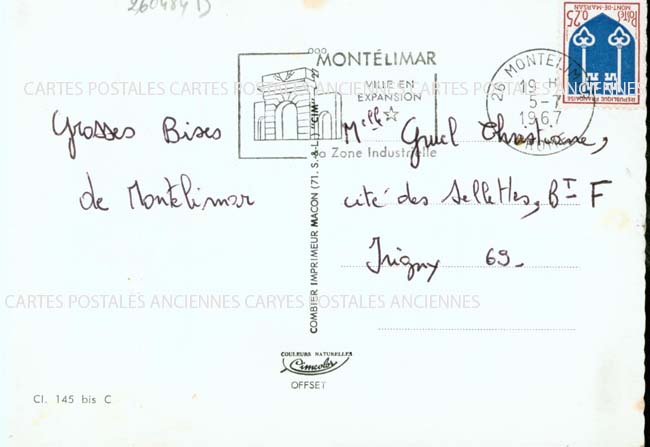 260484 D
MONTÉLIMAR
VILLE EN
EXPANSION
Zone Industrielle
26 MONTELIM
19 H
5-7
1967
0,25
MONT-DE-MARSAN
REPUBLIQUE FRANÇAISE
POSTES
CARTES POSTALES ANCIENNES CARYES POSTALES ANCIENNES
Grosses Bises
de Montelimar
Melle Christiane,
cité des Sellettes, BT F
Irigny 69-
CARTES POSTALES ANCIENNES CARYES POSTALES ANCIENNES
COMBIER IMPRIMEUR MACON (71. S.-&-L.) "CIM"
COULEURS NATURELLES
Cimcolor
OFFSET
Cl. 145 bis C